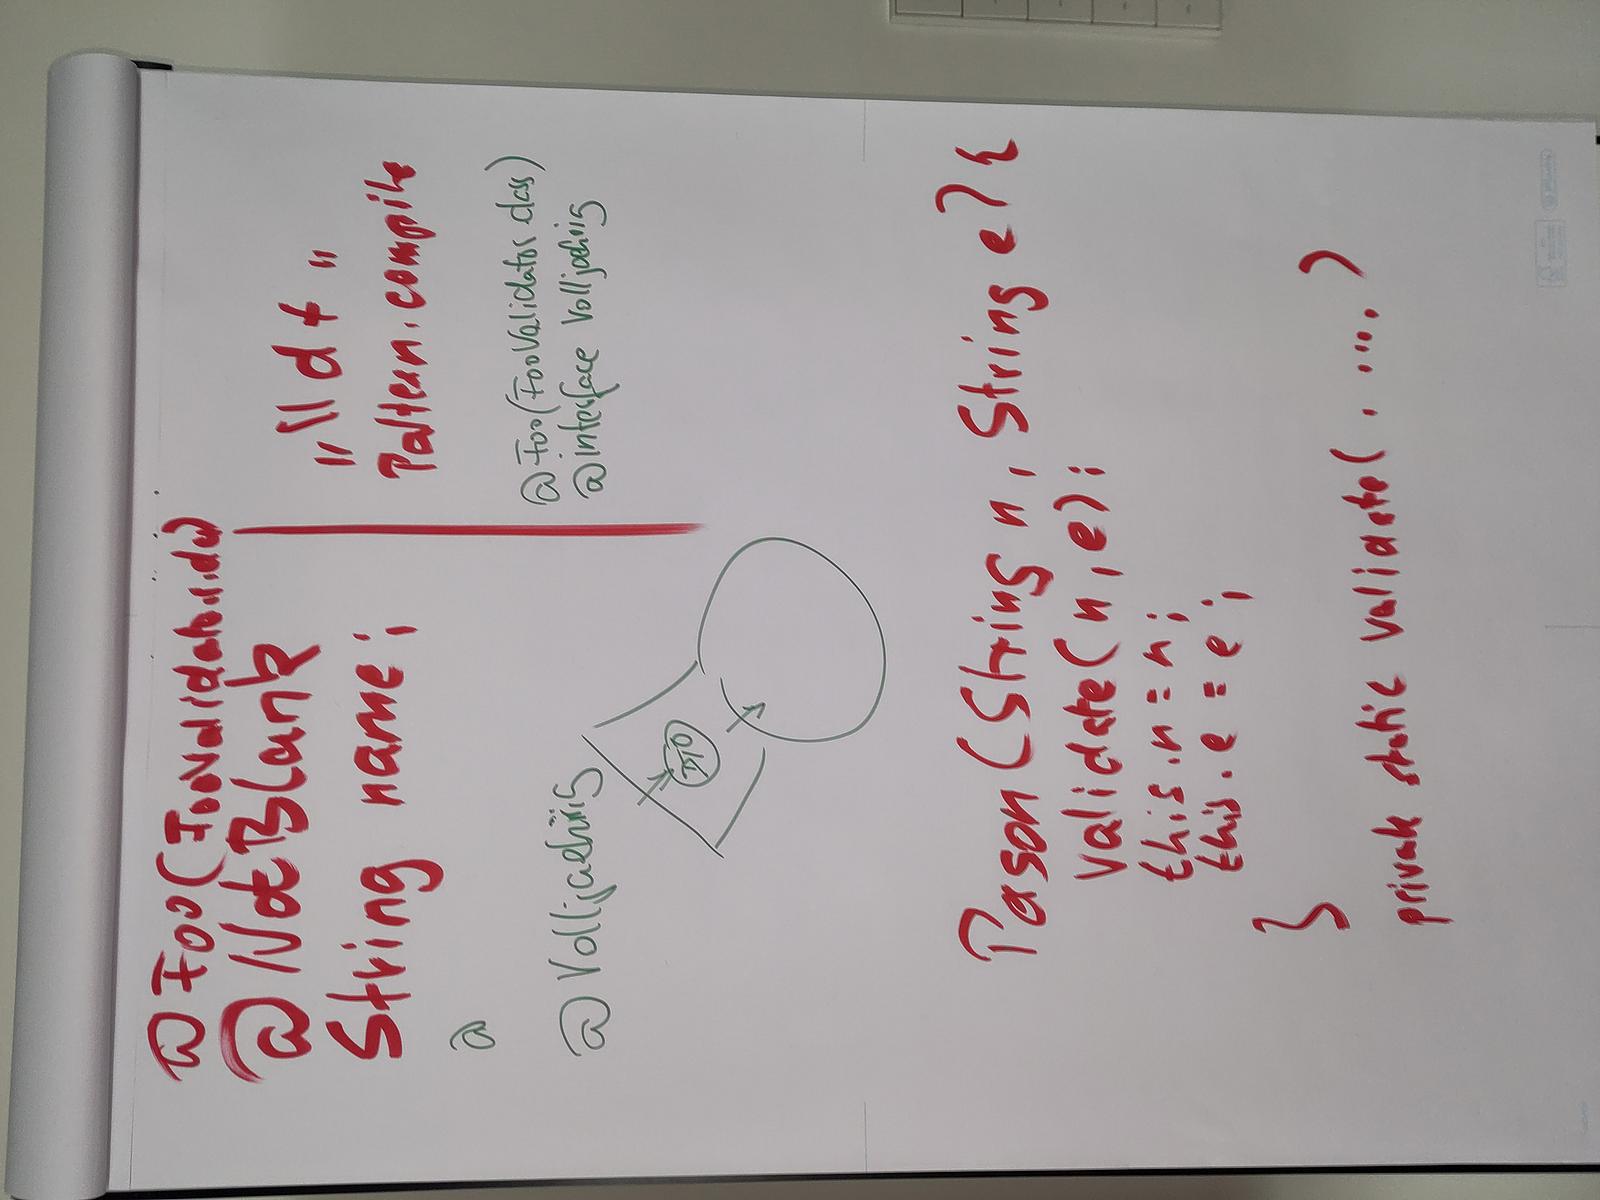 @Foo(FooValidator.
@NotBlank
String name;
@
@Volljaehrig
DTO
„\\d+"
Pattern.compile
@Foo(FooValidator.class)
@interface Volljaehrig
Person(String n, String e){
validate(n,e);
this.n = n;
this.e = e;
}
private static validate(. ....)